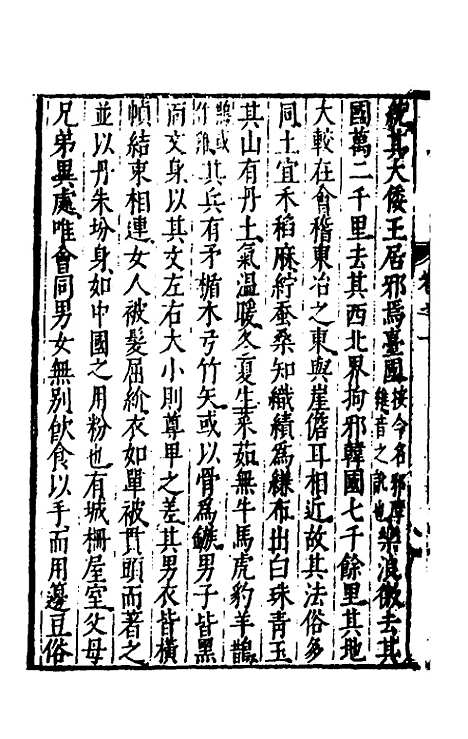 統其大倭王居邪馬臺國按今名邪摩堆音之訛也樂浪徼去其
國萬二千里去其西北界拘邪韓國七千餘里其地
大較在會稽東冶之東與崖儋耳相近故其法俗多
同土宜禾稻麻紵蚕桑知織績為縑布出白珠青玉
其山有丹土氣溫暖冬夏生菜茹無牛馬虎豹羊鵲
鵲或作雞其兵有矛楯木弓竹矢或以骨為鏃男子皆黥
面文身以其文左右大小則尊卑之差其男衣皆橫
幀結束相連女人被髮屈紒衣如單被貫頭而著之
並以丹朱坋身如中國之用粉也有城柵屋室父母
兄弟異處唯會同男女無別飲食以手而用籩豆俗